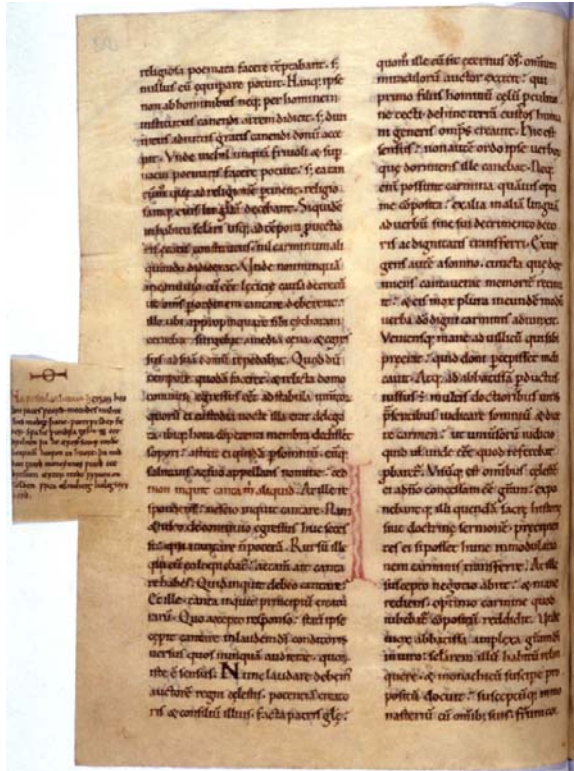 religiosa poemata facere tēptabant. s;
nullus eū equipare potuit. Nanq; ipse
non ab hominibus neq; per hominem
institutus canendi artem didicit. s; diui
nitus adiutus gratis canendi donū acce
pit. Vnde nichil unquā friuoli & sup
uacui poematis facere potuit. s; ea tan
quę ad religionē ptinent. religio
eius linguā decebant. Siquidē
in habitu sclari usq; ad tēpora puectio
ris ętatis constitutus. nil carminum ali
quando didicerat. Unde nonnunquā
in conuiuio cū eēt lęticię causa decretū
ut omſ p ordinem cantare deberent.
ille ubi appropinquare sibi cytharam
cernebat. surgebat a media cęna. & egres
sus ad suā domū repedabat. Quod dū
tempore quodā faceret. & relicta domo
conuiuii egressus eēt ad stabula iumen
quorū ei custodia nocte illa erat delega
ta. ibiq; hora cōpetenti membra dedisset
sopori. astitit ei quidā p somnium. eūq;
salutans ac suo appellans nomine. ced
mon inquit canta m aliquid. At ille re
spondens. nescio inquit cantare. Nam
& ideo de conuiuio egressus huc seces
si. quia cantare ñ poterā. Rursū ille
qui cū eo loquebat. attam ait canta
re habes. Quid inquit debeo cantare.
Et ille. canta inquit principiū creatu
rarū. Quo accepto responso. statī ipse
cępit cantare in laudem dī conditoris
uersus quos nunquā audierat. quoꝝ
iste ē sensus. Nunc laudare debem
auctorē regni cęlestis. potentiā creato
ris & consiliū illius. facta patris glę.
quom̄ ille cū sit ęternus dſ. omnium
miraculorū auctor extitit. qui
primo filiis hominū cęlū p culmi
ne tecti. dehinc terrā custos huma
ni generis omps creauit. Hic est
sensus. non autē ordo ipse uerboꝝ
quę dormiens ille canebat. Neq;
enī possunt carmina quāuis opti
me cōposita. ex alia in aliā linguā
ad uerbū sine sui detrimento deco
ris ac dignitatis transferri. Exur
gens autē a somno. cuncta quę dor
miens cantauerat memoriter retinu
it. & eis mox plura in eundē modū
uerba dō digni carminis adiunxit.
Veniensq; mane ad uillicū qui sibi
preerat. quid doni pcepisset indi
cauit. Atq; ad abbatissā pductus
iussus ē multis doctioribus uiris
psentibus indicare somniū & dice
re carmen. ut uniuersorū iudicio
quid ut unde eēt quod referebat
pbaret. Visūq; est omnibus cęlestē
ei a dño concessam eē grām. expo
nebantq; illi quendā sacrę historię
siue doctrinę sermonē. precipien
tes ei si posset hunc in modulatio
nem carminis transferre. At ille
suscepto negotio abiit. & mane
rediens. optimo carmine quod
iubebat cōpositū reddidit. Unde
mox abbatissa amplexa grām dī
in uiro. sclarem illū habitū relin
quere. & monachicū suscipe pro
positū docuit. susceptūq; in mo
nasteriū cū omib; suis. fratrum co